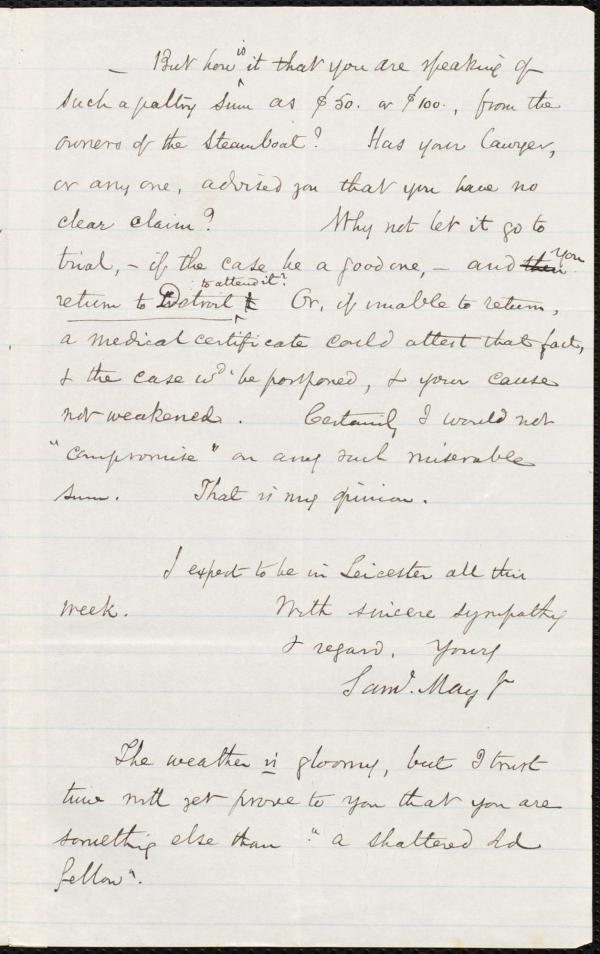 — But how is it that you are speaking of
such a paltry sum as $50. or $100., from the
owners of the Steamboat? Has your lawyer,
or any one, advised you that you have no
clear claim? Why not let it go to
trial, – if the case be a good one, – and then you
return to Detroit to attend it? Or, if unable to return,
a medical certificate could attest that fact,
& the case wd. be postponed, & your cause
not weakened. Certainly I would not
"compromise" on any such miserable
sum. That is my opinion.
I expect to be in Leicester all this
week. With sincere sympathy
& regard, Yours
Saml. May Jr
The weather is gloomy, but I trust
time will yet prove to you that you are
something else than "a shattered old
fellow".